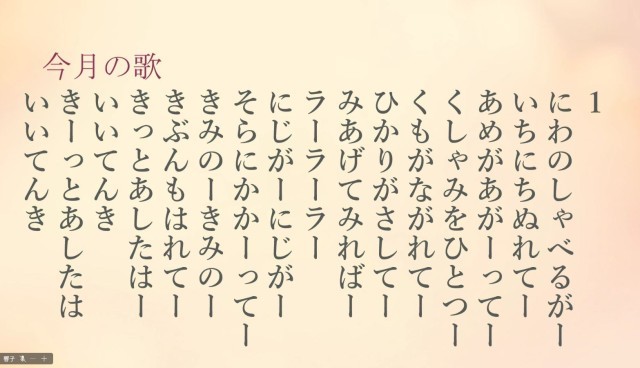 今月の歌
1
にわのしゃべるがー
いちにちぬれてー
あめがあがーってー
くしゃみをひとつー
くもがながれてー
ひかりがさしてー
みあげてみればー
ラーラーラー
にじがーにじがー
そらにかかーってー
きみのーきみのー
きぶんもはれてー
きっとあしたはー
いいてんき
きーっとあしたは
いいてんき